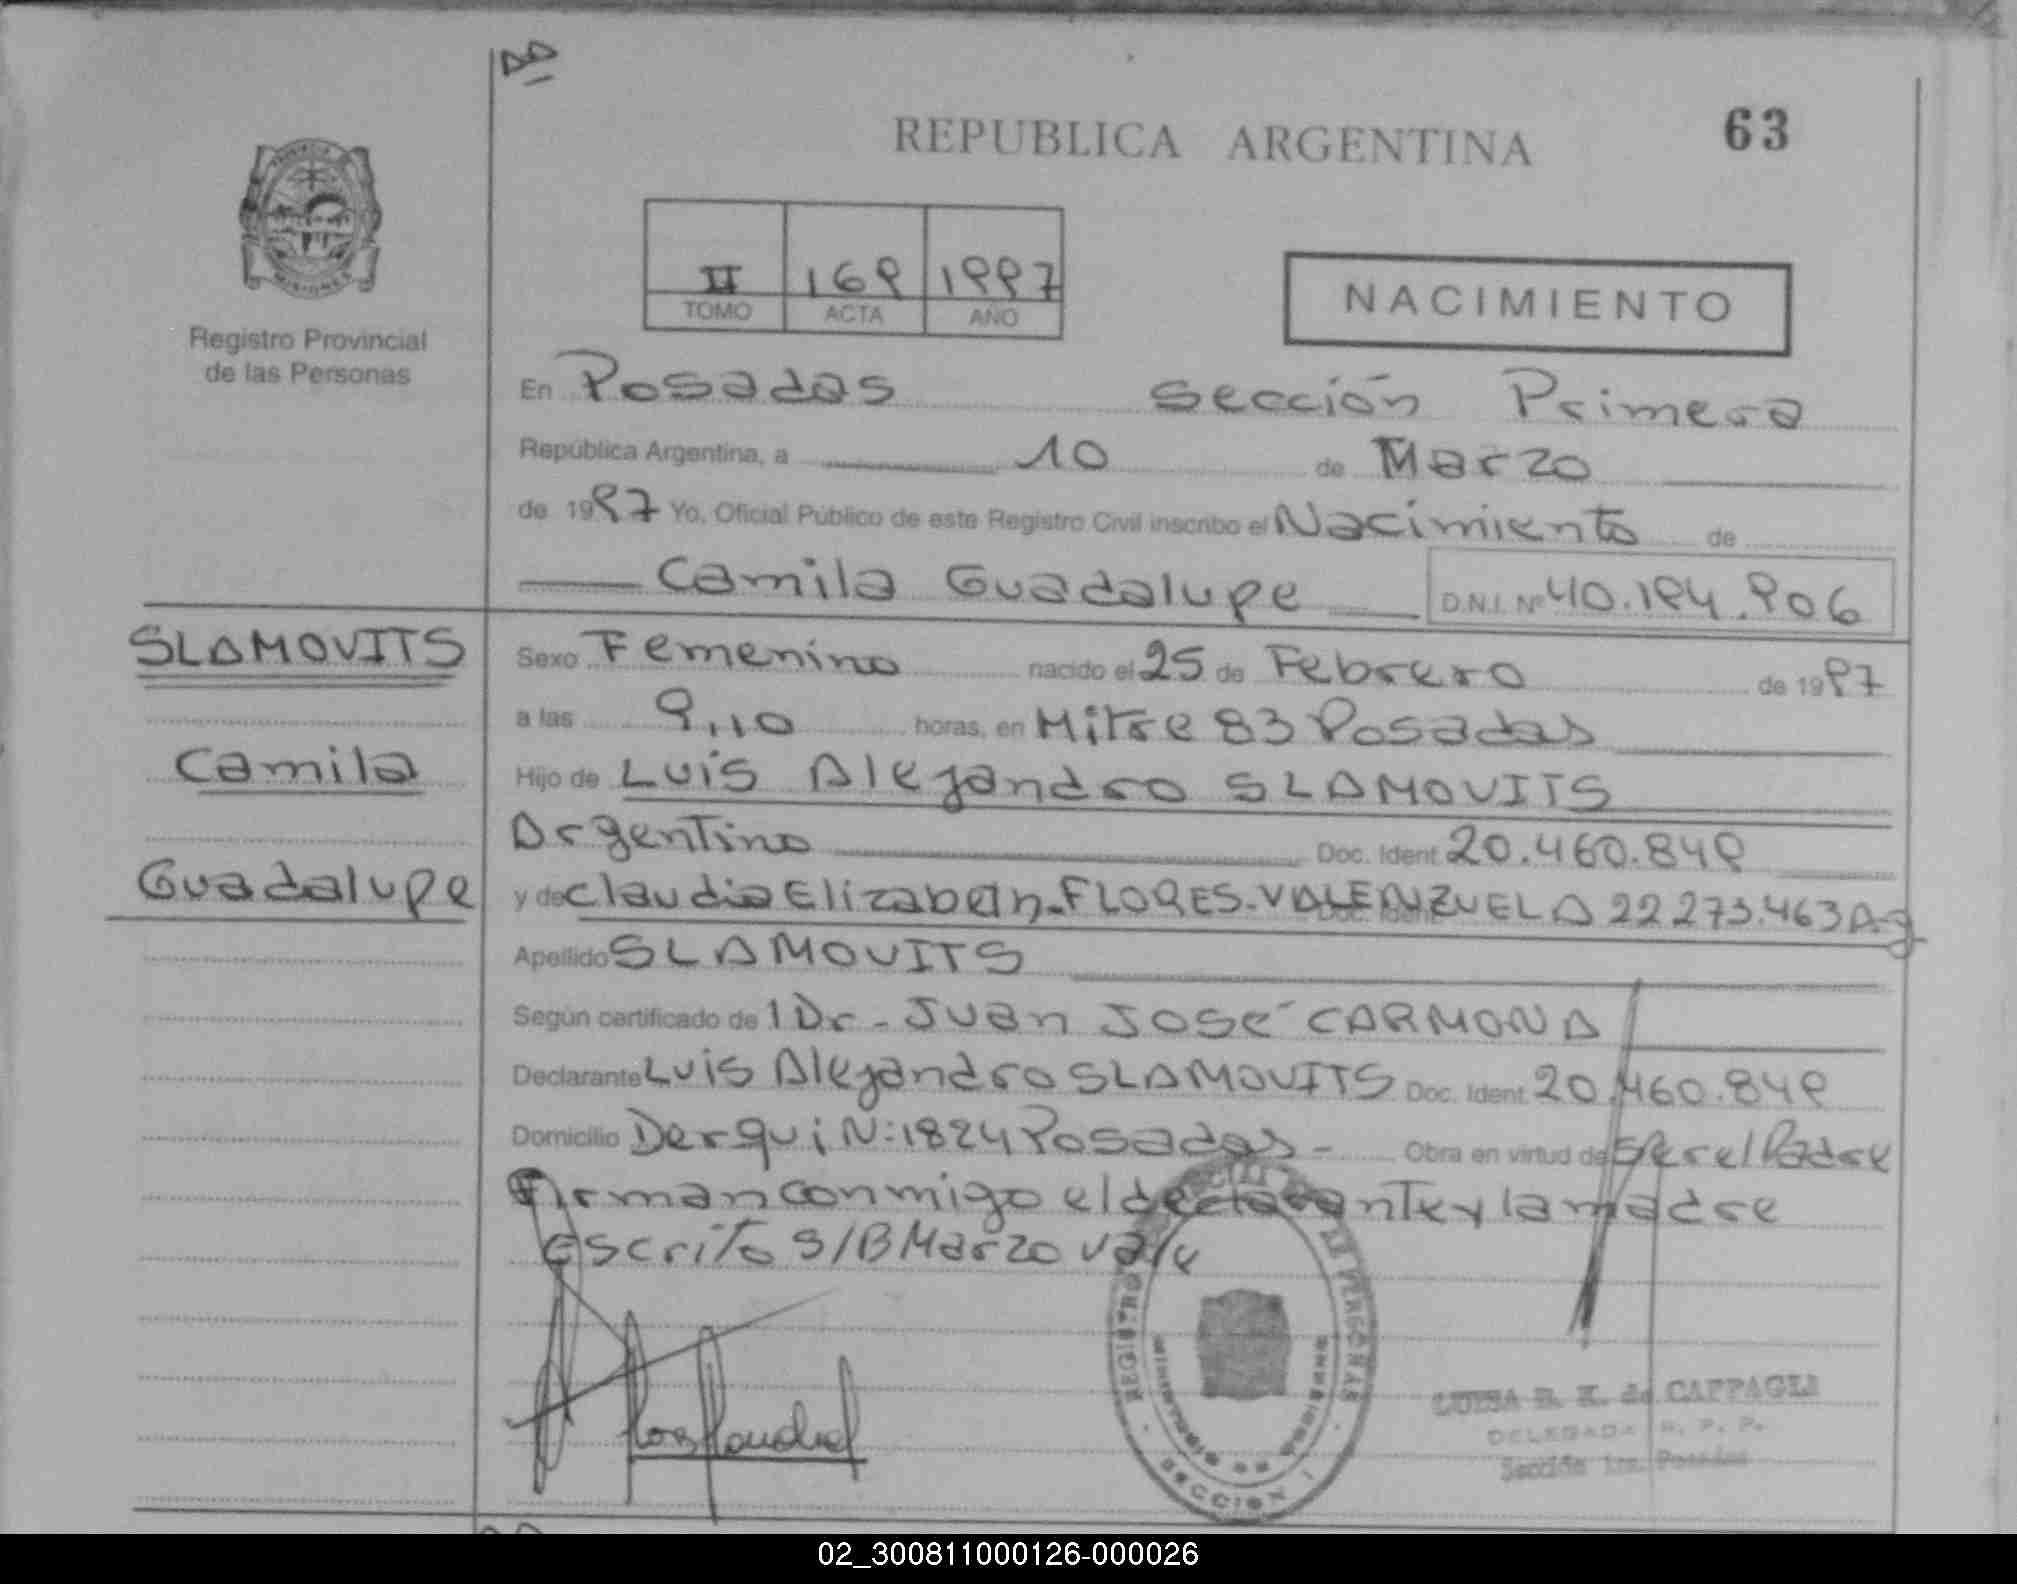 REPUBLICA ARGENTINA
63
II 169 1997
TOMO ACTA AÑO
NACIMIENTO
Registro Provincial
de las Personas
En Posadas Sección Primera
República Argentina, a 10 de Marzo
de 1997 Yo, Oficial Público de este Registro Civil inscribo el Nacimiento de
Camila Guadalupe D.N.I. Nº 40.194.906
SLAMOVITS
Camila
Guadalupe
Sexo Femenino nacido el 25 de Febrero de 1997
a las 9,10 horas, en Mitre 83 Posadas
Hijo de Luis Alejandro SLAMOVITS
Argentino Doc. Ident. 20.460.849
y de Claudia Elizabeth FLORES VALENZUELA 22.273.463 Ag
Apellido SLAMOVITS
Según certificado de l Dr. Juan José CARMONA
Declarante Luis Alejandro SLAMOVITS Doc. Ident. 20.460.849
Domicilio Derqui N:1824 Posadas - Obra en virtud de Ser el Padre
Firman conmigo el declarante y la madre
Escrito S/B Marzo vale
REGISTRO DE LAS PERSONAS
MINISTERIO DE GOBIERNO
SECCION 1
LUISA R. K. de CAFFAGLI
DELEGADA R. P. P.
Sección 1ra. Posadas
02_300811000126-000026